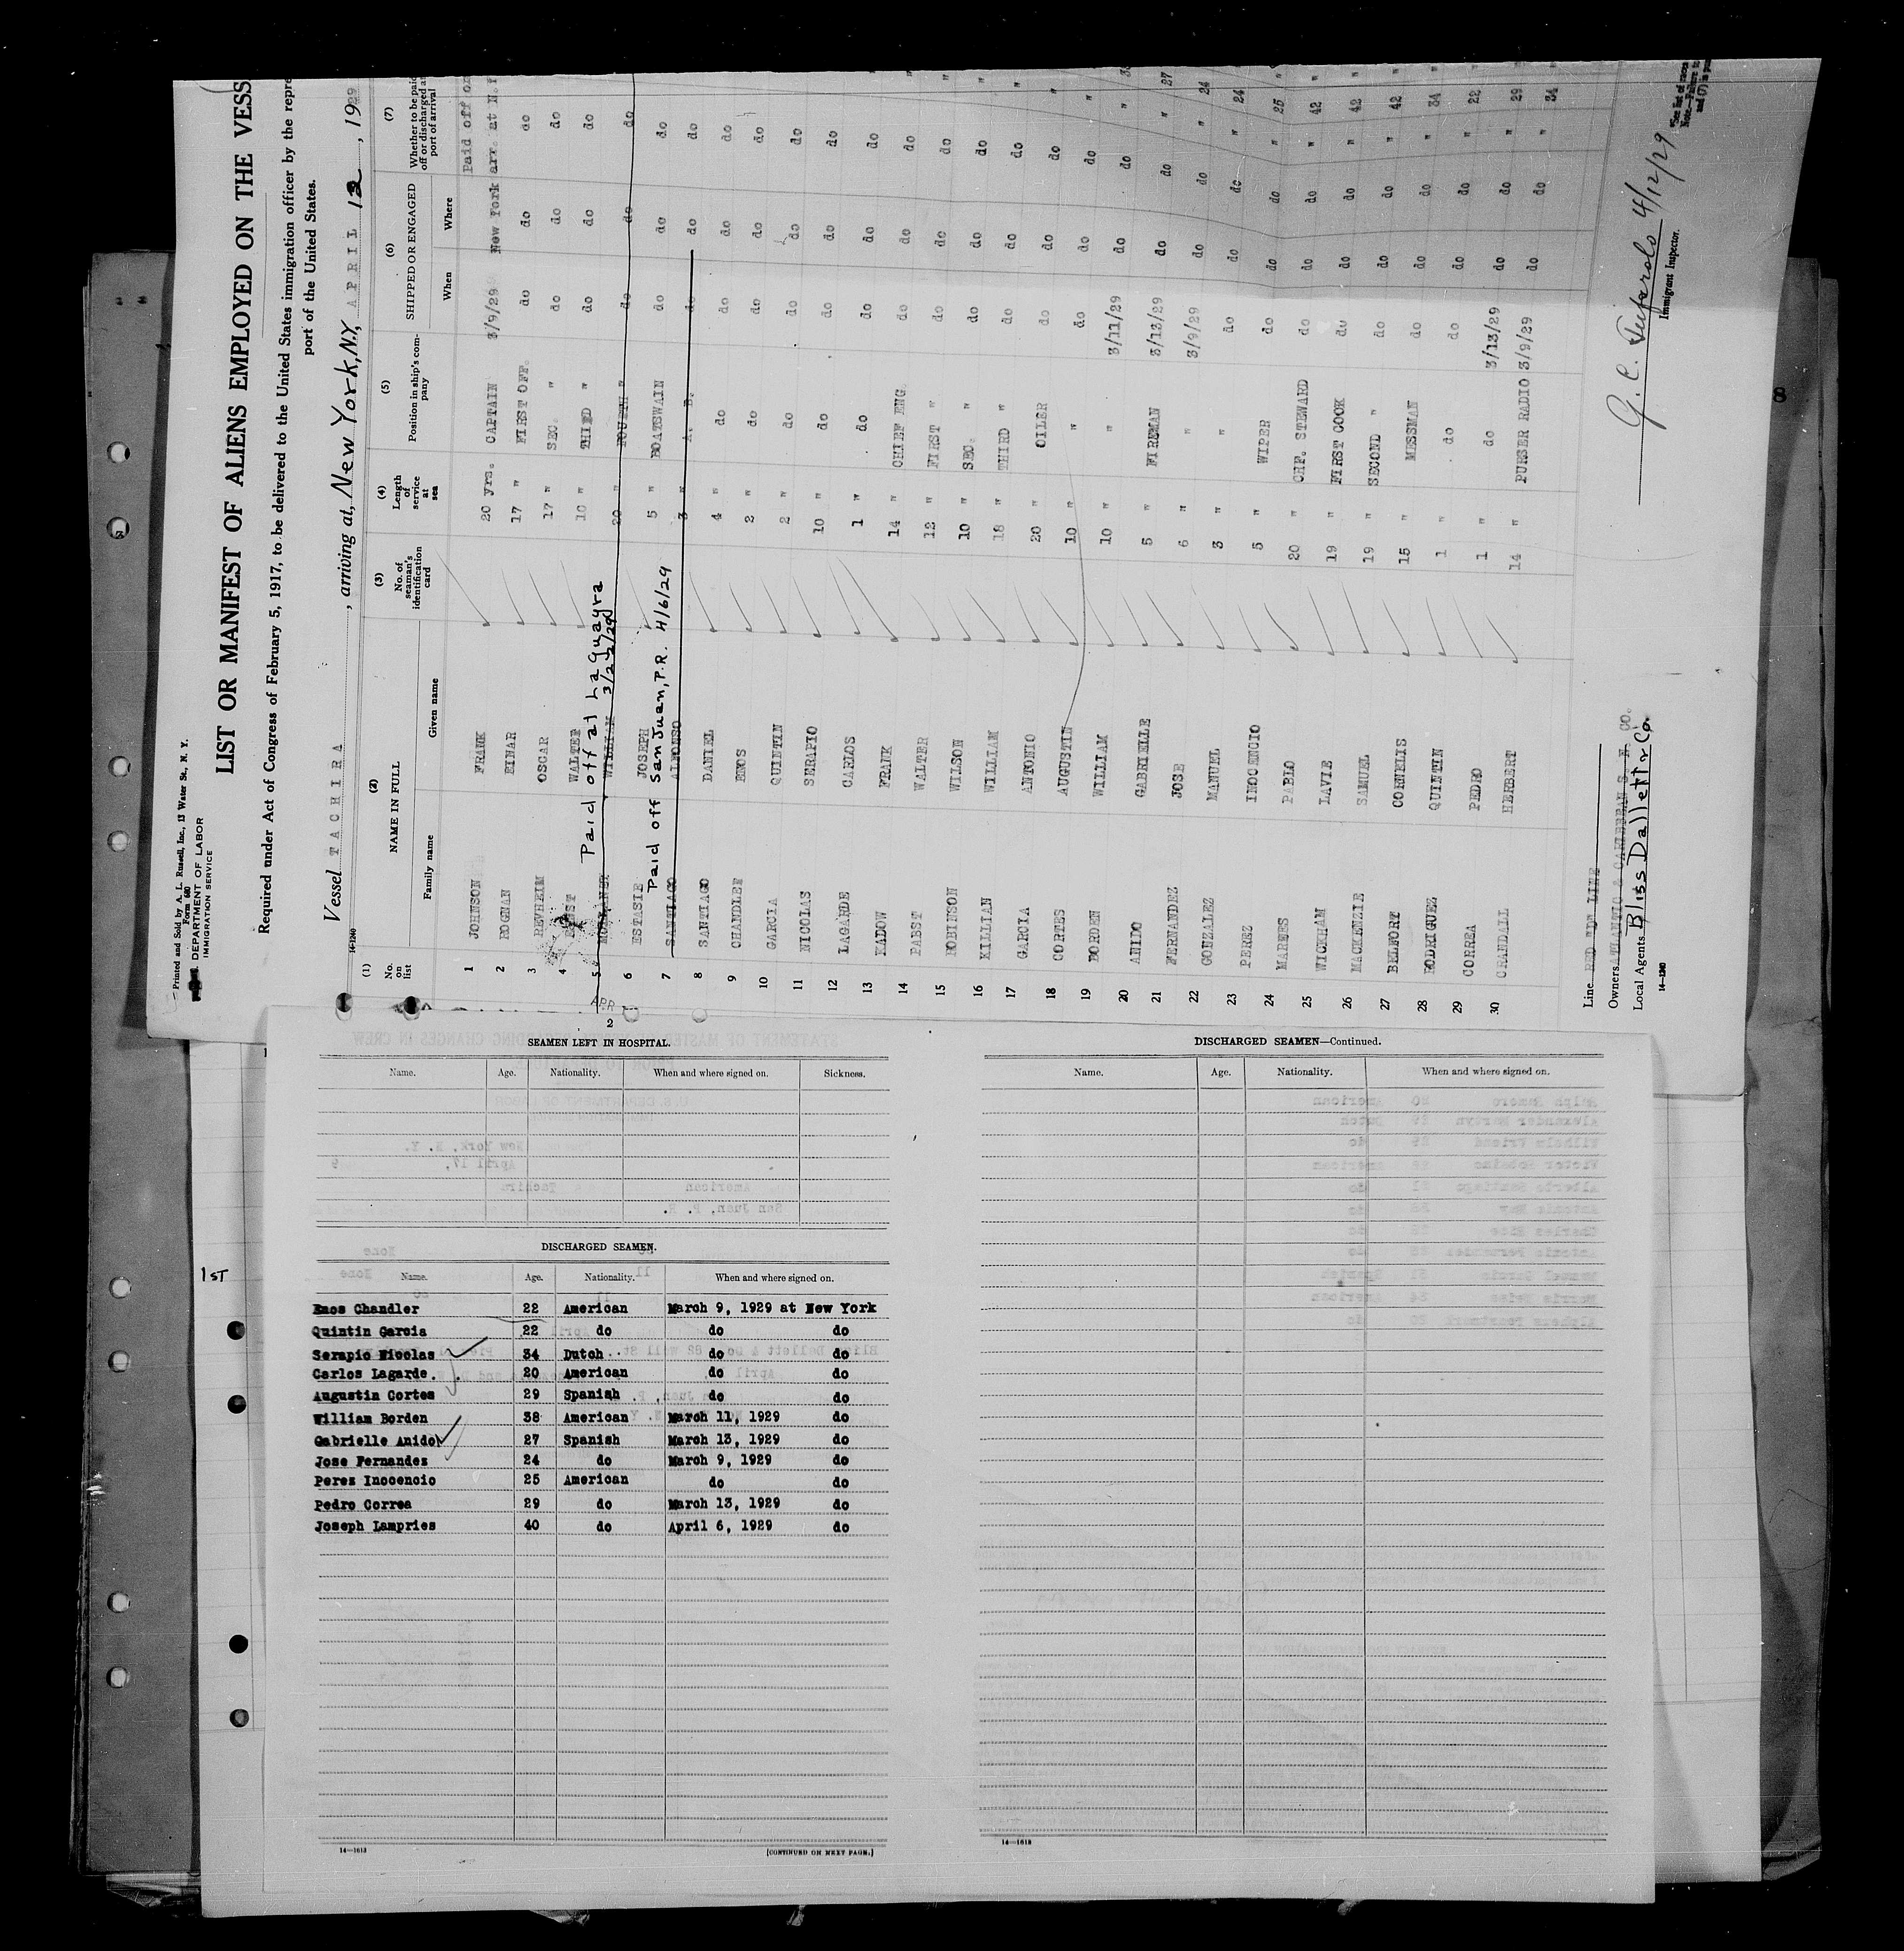 Printed and Sold by A. L. Russell, Inc., 13 Water St., N. Y.
Form 680
DEPARTMENT OF LABOR
IMMIGRATION SERVICE
LIST OR MANIFEST OF ALIENS EMPLOYED ON THE VESS
Required under Act of Congress of February 5, 1917, to be delivered to the United States immigration officer by the repre
port of the United States.
Vessel TACHIRA , arriving at, New York, N.Y, APRIL 12 , 1929
14-1240
(1) No. on list (2) NAME IN FULL Family name Given name (3) No. of seaman's identification card (4) Length of service at sea (5) Position in ship's company (6) SHIPPED OR ENGAGED When Where (7) Whether to be paid off or discharged at port of arrival
Paid off or
1 JOHNSON FRANK 20 yrs. CAPTAIN 3/9/29 New York arr. at N.
2 ROGNAN EINAR 17 " FIRST OFF. do do do
3 REVHEIM OSCAR 17 " SEC. " do do do
4 WALTER " THIRD " do do do
Paid off at La Guayra 3/22/29
5 WILLIAM 20 " FOURTH " do do do
6 ESTASIE JOSEPH 5 " BOATSWAIN do do do
Paid off San Juan, P.R. 4/6/29
7 SANTIAGO ALFONSO 3 " A. B. do do do
8 SANTIAGO DANIEL 4 " do do do do
9 CHANDLER ENOS 2 " do do do do
10 GARCIA QUINTIN 2 " do do do do
11 NICOLAS SERAPIO 10 " do do do do
12 LAGARDE CARLOS 1 " do do do do
13 KADOW FRANK 14 " CHIEF ENG. do do do
14 PABST WALTER 12 " FIRST " do do do
15 ROBINSON WILSON 10 " SEC. " do do do
16 KILLIAN WILLIAM 18 " THIRD " do do do
17 GARCIA ANTONIO 20 " OILER do do do
18 CORTES AUGUSTIN 10 " " do do do
19 BORDEN WILLIAM 10 " " 3/11/29 do do
20 ANIDO GABRIELLE 5 " FIREMAN 3/13/29 do do " 27
21 FERNANDEZ JOSE 6 " " 3/9/29 do do " 24
22 GONZALEZ MANUEL 3 " " do do do " 24
23 PEREZ INOCENCIO 5 " WIPER do do do " 25
24 PABLO 20 " CHF. STEWARD do do do " 42
25 WICKHAM LAVIE 19 " FIRST COOK do do do " 42
26 MACKENZIE SAMUEL 19 " SECOND " do do do " 42
27 BELFORT CORNELIS 15 " MESSMAN do do do " 34
28 RODRIGUEZ QUINTIN 1 " do do do do " 22
29 CORREA PEDRO 1 " do 3/13/29 do do " 29
30 CRANDALL HERBERT 14 " PURSER RADIO 3/9/29 do do " 34
Line RED "D" LINE
Owners ATLANTIC & CARIBBEAN S. N. CO.
Local Agents Bliss Dallett & Co.
14-1240
4/12/29
Immigrant Inspector.
APR
2
SEAMEN LEFT IN HOSPITAL.
Name. Age. Nationality. When and where signed on. Sickness.
DISCHARGED SEAMEN.
1ST
Name. Age. Nationality. When and where signed on.
Enos Chandler 22 American March 9, 1929 at New York
Quintin Garcia 22 do do do
Serapio Nicolas 34 Dutch do do
Carlos Lagarde. 20 American do do
Augustin Cortes 29 Spanish do do
William Borden 38 American March 11, 1929 do
Gabrielle Anido 27 Spanish March 13, 1929 do
Jose Fernandez 24 do March 9, 1929 do
Perez Inocencio 25 American do do
Pedro Correa 29 do March 13, 1929 do
Joseph Lampries 40 do April 6, 1929 do
14—1613
[CONTINUED ON NEXT PAGE.]
DISCHARGED SEAMEN—Continued.
Name. Age. Nationality. When and where signed on.
14—1613
8